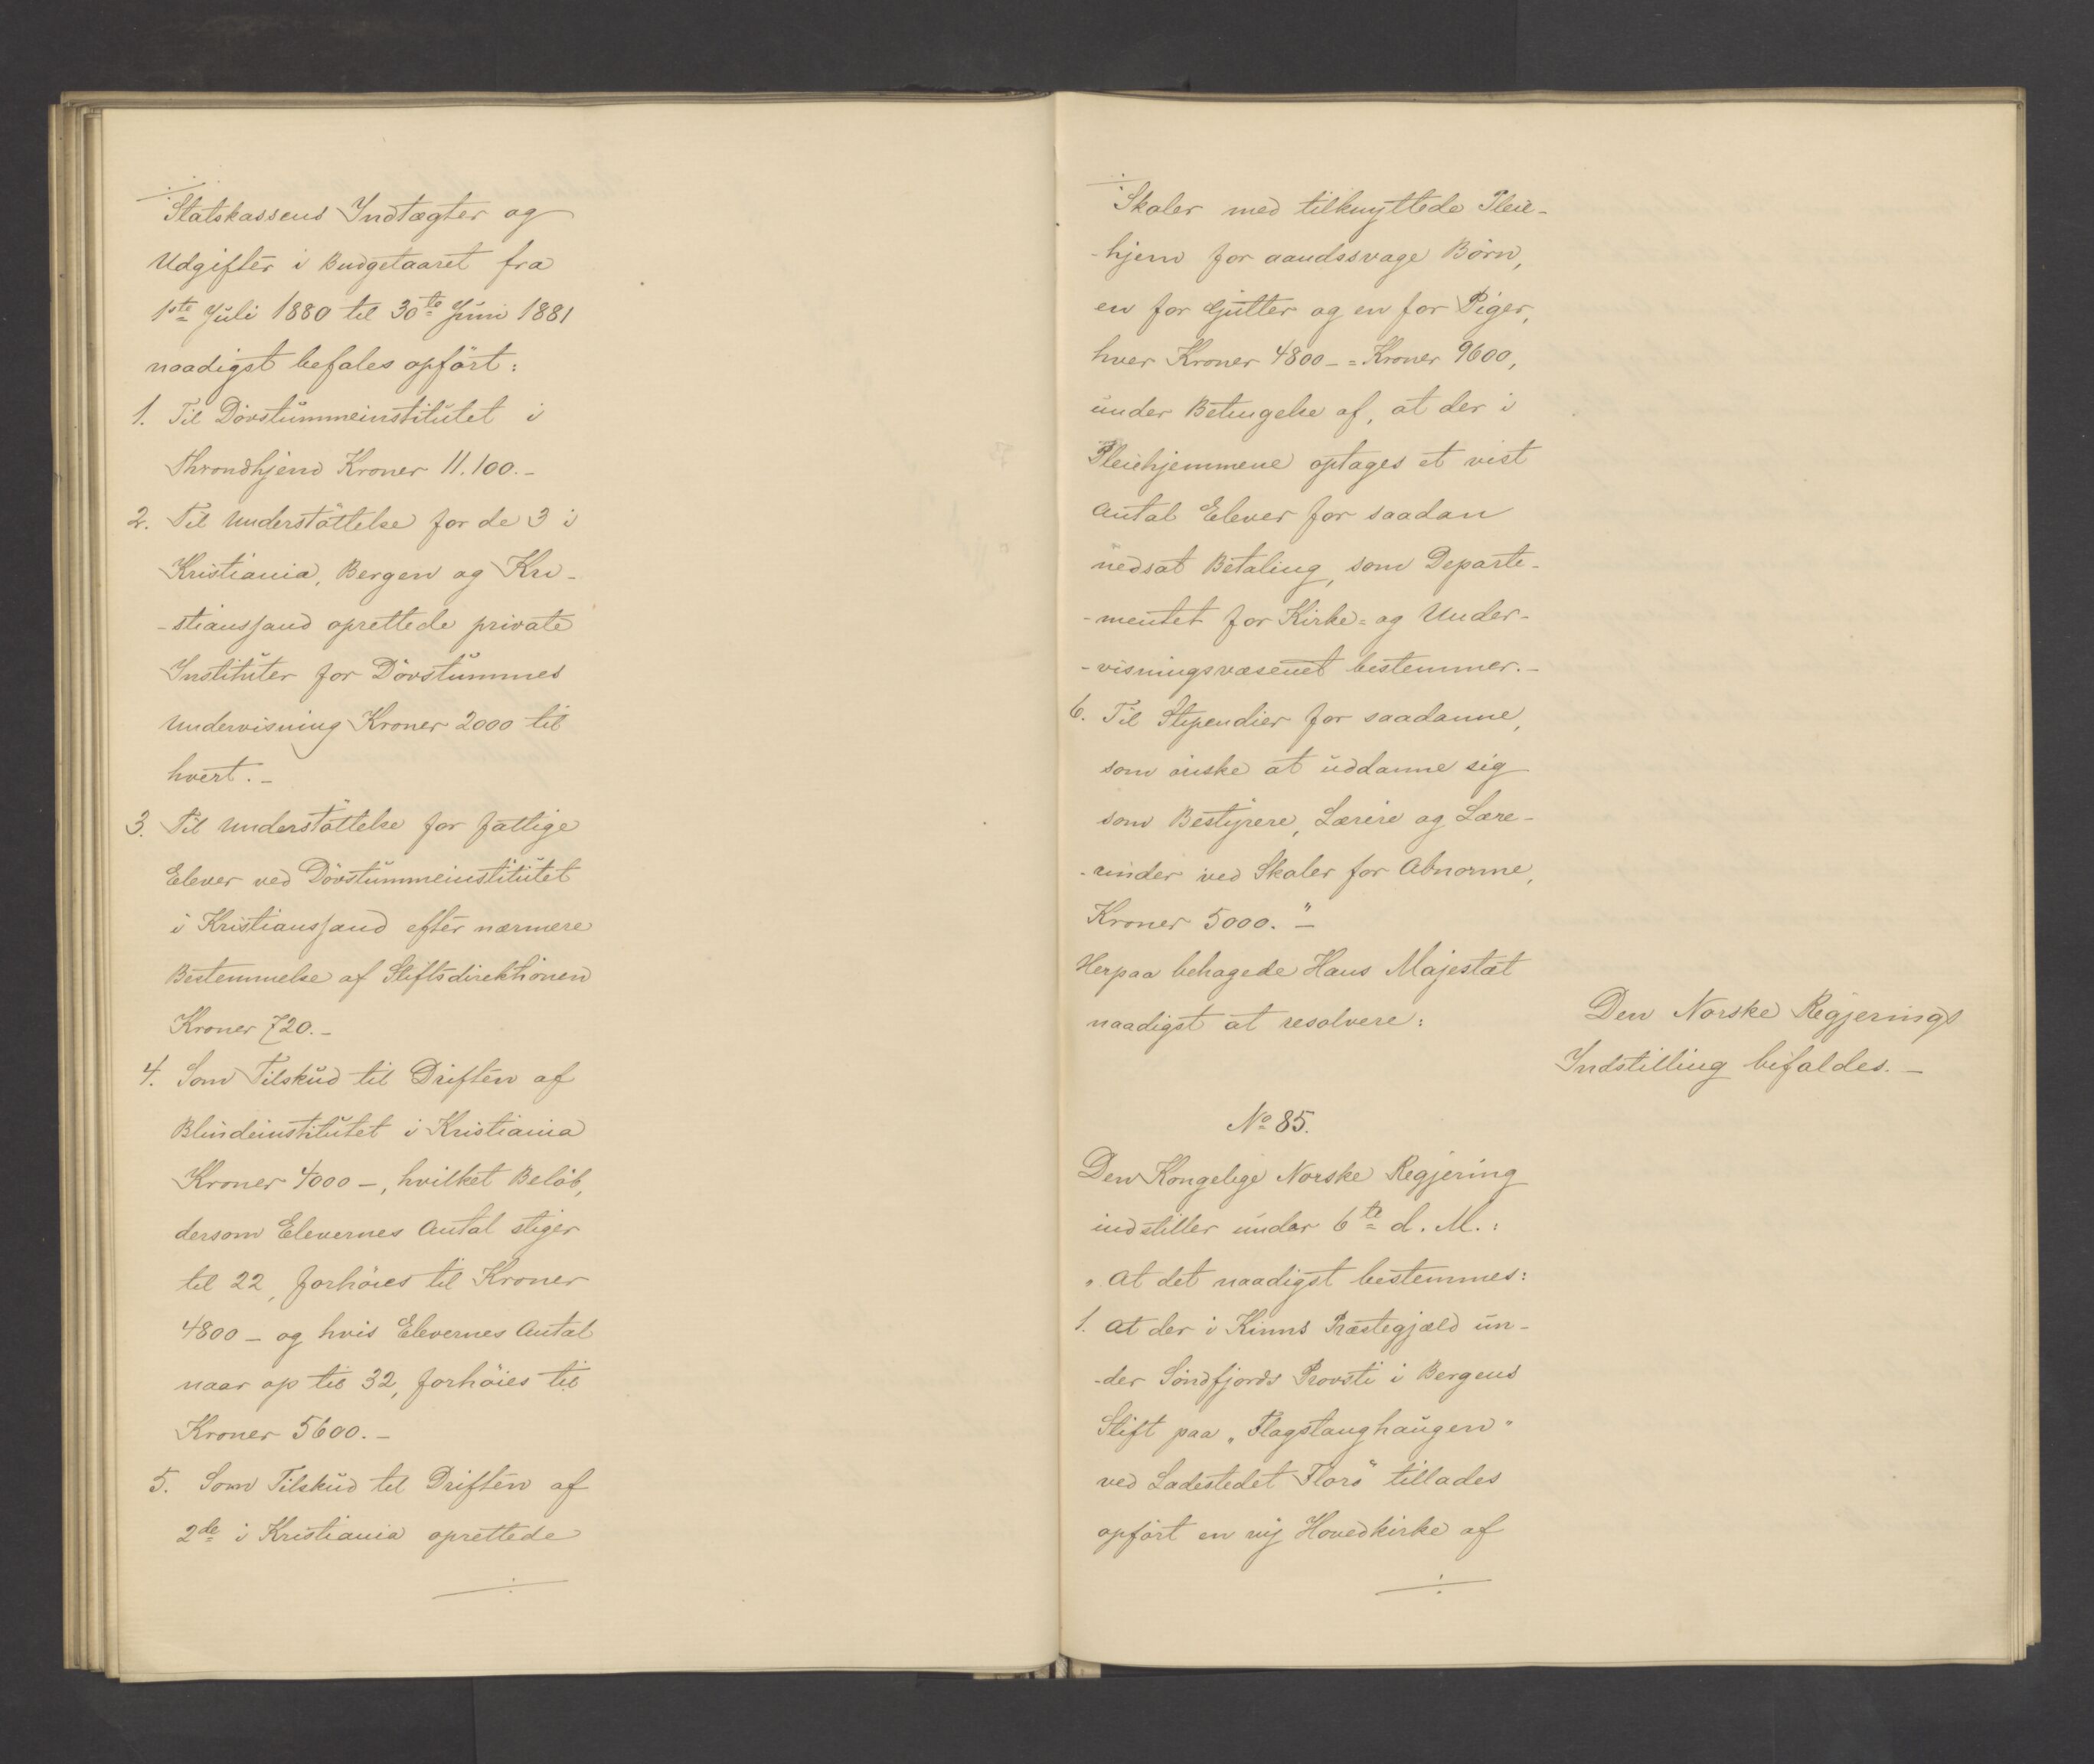 Statskassens Indtægter og
Udgifter i Budgetaaret fra
1ste Juli 1880 til 30te Juni 1881
naadigst befales opført:
1. Til Døvstummeinstitutet i
Throndhjem Kroner 11.100.-
2. Til Understøttelse for de 3 i
Kristiania, Bergen og Kri-
-stianssand oprettede private
Instituter for Døvstummes
Undervisning Kroner 2000 til
hvert.-
3. Til Understøttelse for fattige
Elever ved Døvstummeinstitutet
i Kristianssand efter nærmere
Bestemmelse af Stiftsdirektionen
Kroner 720.-
4. Som Tilskud til Driften af
Blindeinstitutet i Kristiania
Kroner 4000 -, hvilket Beløb,
dersom Elevernes Antal stiger
til 22, forhøies til Kroner
4800 - og hvis Elevernes Antal
naar op til 32, forhøies til
Kroner 5600.-
5. Som Tilskud til Driften af
2de i Kristiania oprettede
Skoler med tilknyttede Pleie-
-hjem for aandssvage Børn,
en for Gutter og en for Piger,
hver Kroner 4800 - = Kroner 9600,
under Betingelse af, at der i
Pleiehjemmene optages et vist
Antal Elever for saadan
nedsat Betaling, som Departe-
-mentet for Kirke= og Under-
-visningsvæsenet bestemmer.-
6. Til Stipendier for saadanne,
som ønske at uddanne sig
som Bestyrere, Lærere og Lære-
-rinder ved Skoler for Abnorme,
Kroner 5000." -
Herpaa behagede Hans Majestæt
naadigst at resolvere:
Den Norske Regjerings
Indstilling bifaldes. -
No 85.
Den Kongelige Norske Regjering
indstiller under 6te d. M.:
"At det naadigst bestemmes:
1. At der i Kinns Præstegjæld un-
-der Søndfjords Provsti i Bergens
Stift paa "Flagstanghaugen"
ved Ladestedet Florø tillades
opført en ny Hovedkirke af